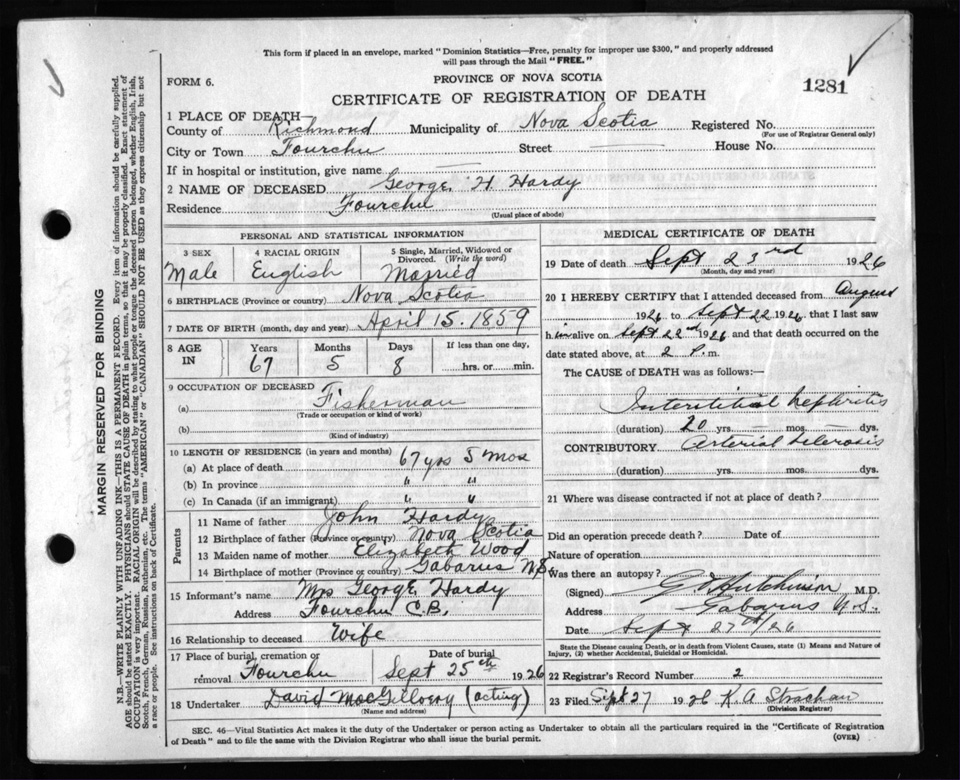 This form if placed in an envelope, marked "Dominion Statistics—Free, penalty for improper use $300," and properly addressed
will pass through the Mail "FREE."
FORM 6.
PROVINCE OF NOVA SCOTIA
1281
CERTIFICATE OF REGISTRATION OF DEATH
1 PLACE OF DEATH—
County of Richmond Municipality of Nova Scotia Registered No.
(For use of Registrar General only)
City or Town Fourchu Street House No.
If in hospital or institution, give name
2 NAME OF DECEASED George H Hardy
Residence Fourchu
(Usual place of abode)
PERSONAL AND STATISTICAL INFORMATION
3 SEX 4 RACIAL ORIGIN 5 Single, Married, Widowed or Divorced. (Write the word)
Male English Married
6 BIRTHPLACE (Province or country) Nova Scotia
7 DATE OF BIRTH (month, day and year) April 15. 1859
8 AGE IN Years Months Days If less than one day,
67 5 8 hrs. or min.
9 OCCUPATION OF DECEASED
(a) Fisherman
(Trade or occupation or kind of work)
(b)
(Kind of industry)
10 LENGTH OF RESIDENCE (in years and months)
(a) At place of death 67 yrs 5 mos
(b) In province " "
(c) In Canada (if an immigrant) " "
Parents
11 Name of father John Hardy
12 Birthplace of father (Province or country) Nova Scotia
13 Maiden name of mother Elizabeth Wood
14 Birthplace of mother (Province or country) Gabarus N.S.
15 Informant's name Mrs George Hardy
Address Fourchu C.B.
16 Relationship to deceased Wife
17 Place of burial, cremation or removal Fourchu Date of burial Sept 25th 1926
18 Undertaker David MacGillvery (acting)
(Name and address)
MEDICAL CERTIFICATE OF DEATH
19 Date of death Sept 23rd 1926
(Month, day and year)
20 I HEREBY CERTIFY that I attended deceased from August
1926 to Sept 22 1926, that I last saw
h im alive on Sept 22nd 1926 and that death occurred on the
date stated above, at 2 P. m.
The CAUSE of DEATH was as follows:—
Interstitial Nephritis
(duration) 20 yrs. mos. dys.
CONTRIBUTORY Arterial Sclerosis
(duration) yrs. mos. dys.
21 Where was disease contracted if not at place of death?
Did an operation precede death? Date of
Nature of operation
Was there an autopsy?
(Signed) Hutchinson M.D.
Address Gabarus N.S.
Date Sept 27th/26
State the Disease causing Death, or in death from Violent Causes, state (1) Means and Nature of
Injury, (2) whether Accidental, Suicidal or Homicidal.
22 Registrar's Record Number 2
23 Filed Sept 27 1926 K. A Strachan
(Division Registrar)
SEC. 46—Vital Statistics Act makes it the duty of the Undertaker or person acting as Undertaker to obtain all the particulars required in the "Certificate of Registration
of Death" and to file the same with the Division Registrar who shall issue the burial permit.
(OVER)
MARGIN RESERVED FOR BINDING
N.B.—WRITE PLAINLY WITH UNFADING INK—THIS IS A PERMANENT RECORD. Every item of information should be carefully supplied.
AGE should be stated EXACTLY. PHYSICIANS should STATE CAUSE OF DEATH in plain terms, so that it may be properly classified. Exact statement of
OCCUPATION is very important. RACIAL ORIGIN will be described by stating to what people or tongue the deceased person belonged, whether English, Irish,
Scotch, French, German, Russian, Ruthenian, etc. The terms "AMERICAN" or "CANADIAN" SHOULD NOT BE USED as they express citizenship but not
a race or people. See instructions on back of Certificate.